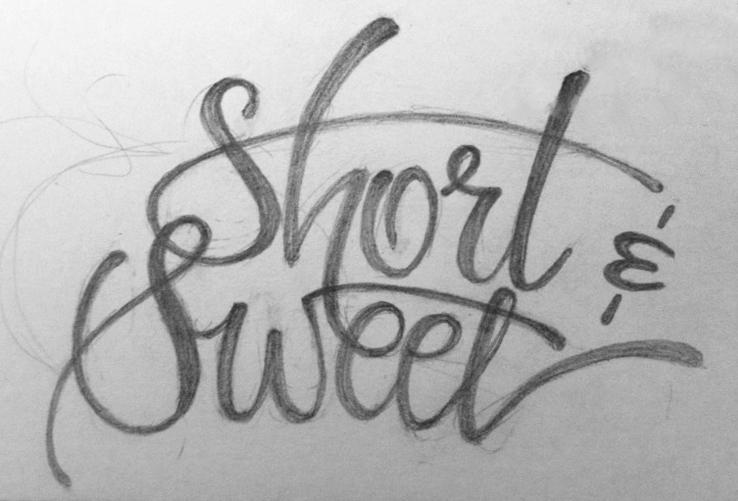 Short &
Sweet